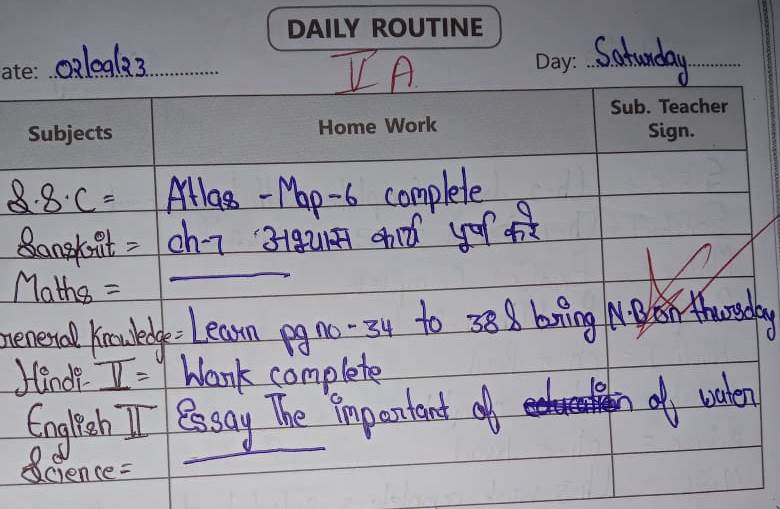 DAILY ROUTINE
ate: 02/09/23 Day: Saturday
V A
Subjects Home Work Sub. Teacher Sign.
S.S.C = Atlas - Map - 6 complete
Sanskrit = ch-7 अभ्यास कार्य पूर्ण करे
Maths =
General Knowledge = Learn pg no - 34 to 38 & bring N.B on thursday
Hindi - II = Work complete
English II Essay The important of of water
Science =